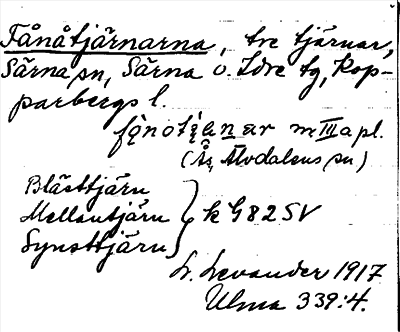 Fånåtjärnarna, tre tjärnar,
Särna sn, Särna o. Idre tg, Kop-
parbergs l.
m III a pl.
(Åv. Älvdalens sn)
Blästtjärn
Mellantjärn } k G 82 SV
Synsttjärn
L. Levander 1917
Ulma 339:4.